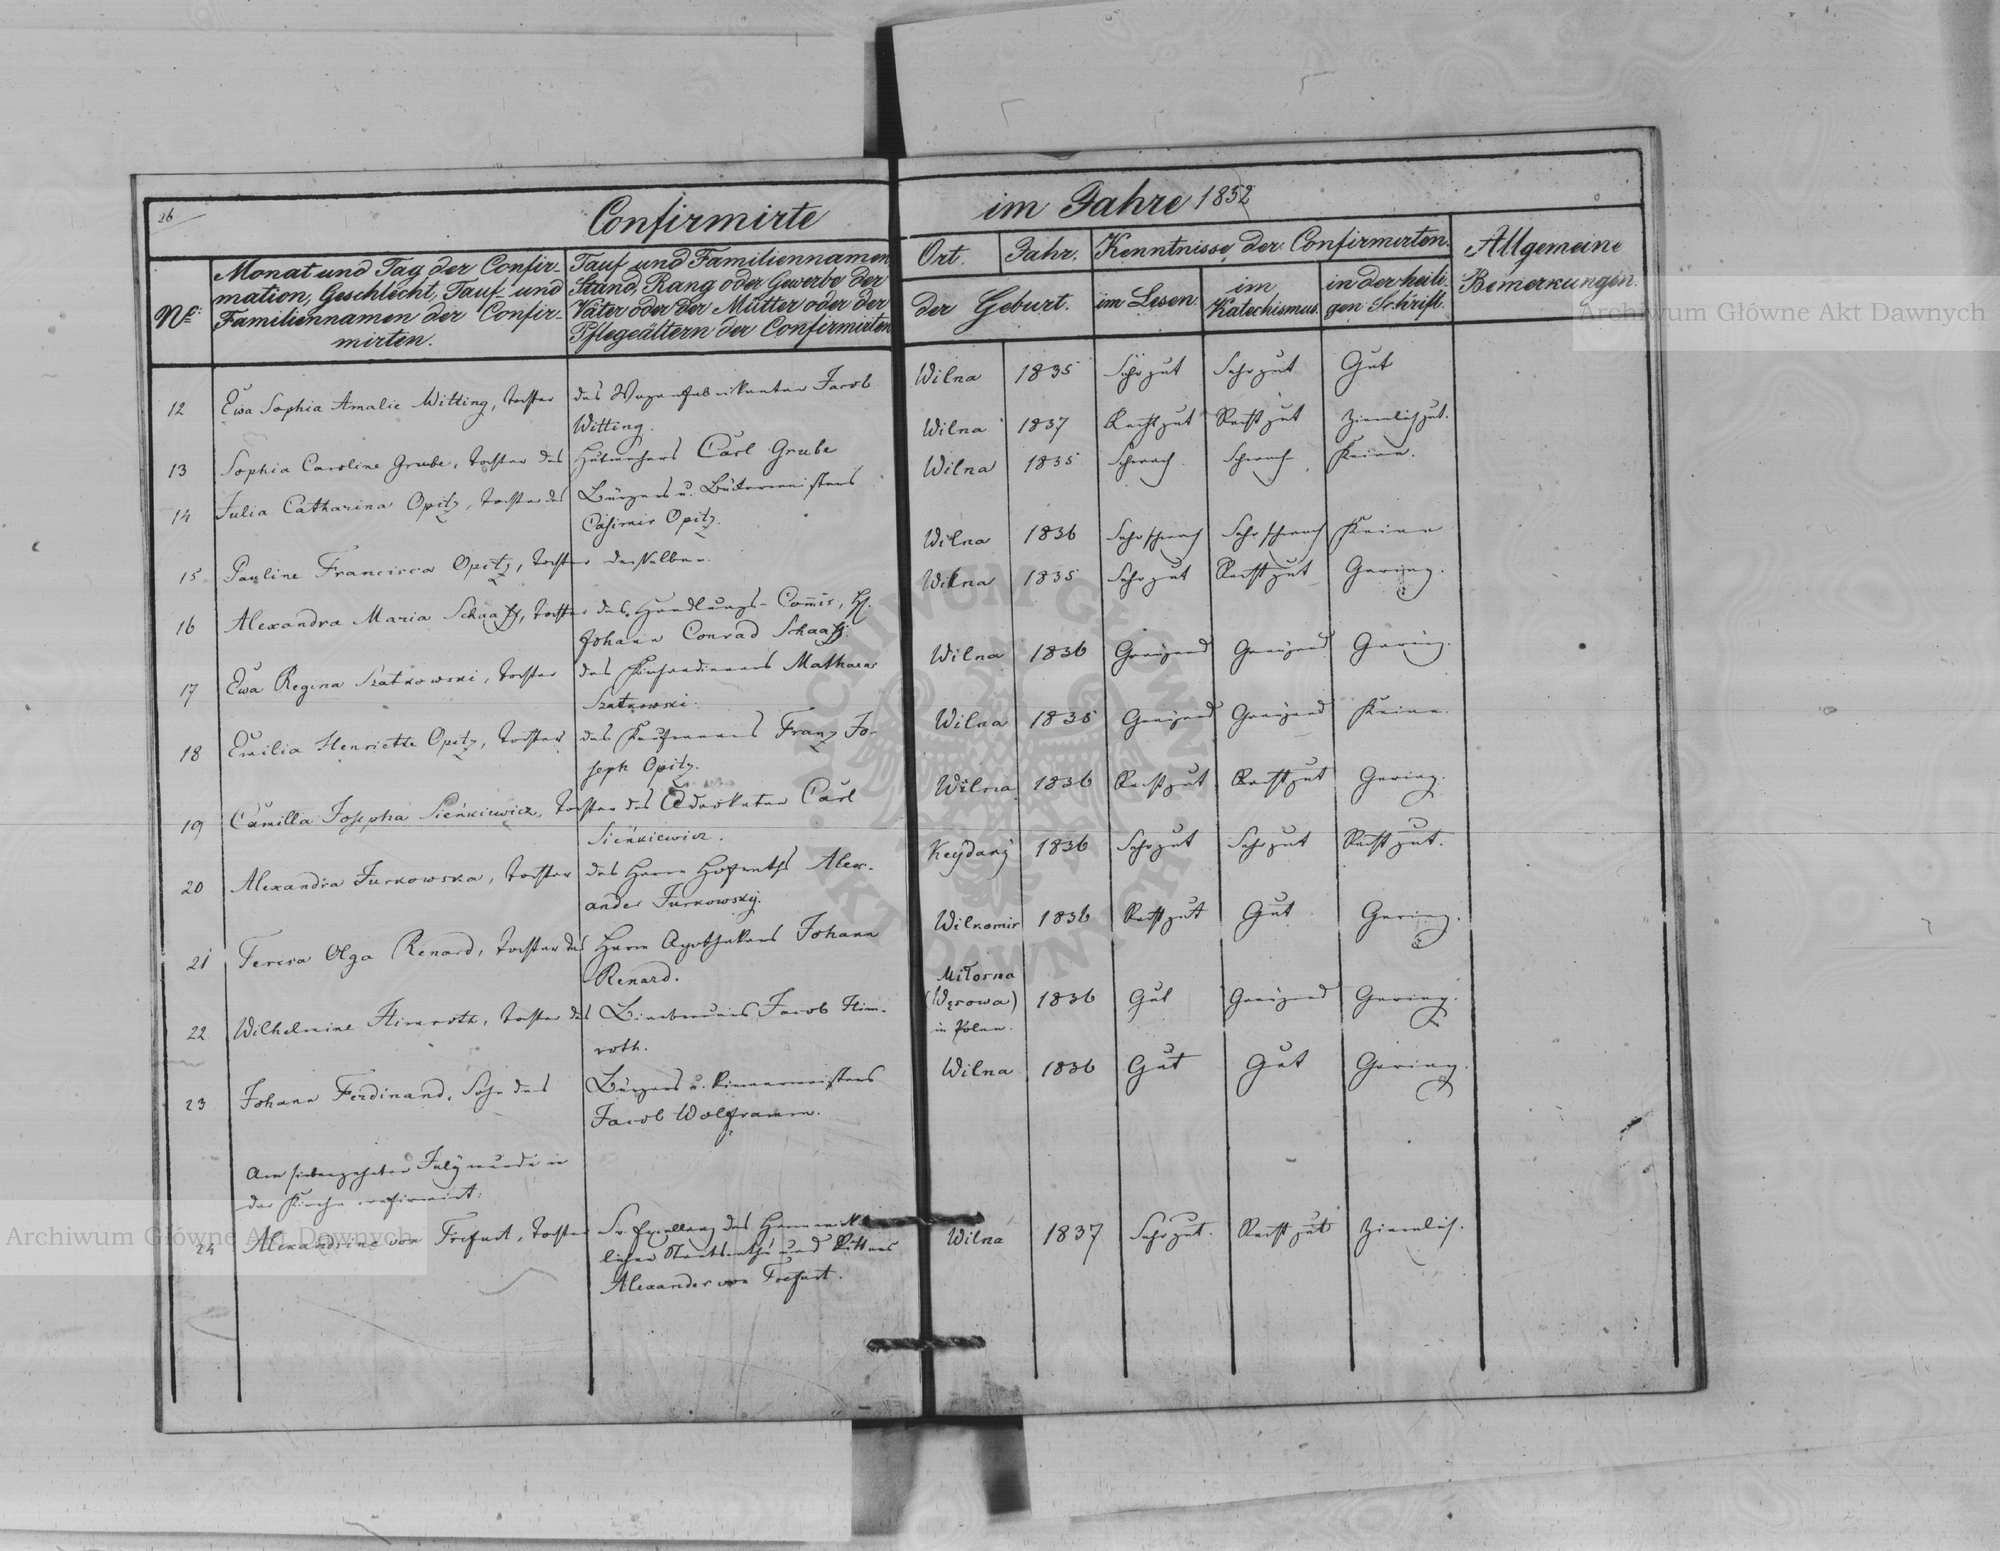 26
Confirmirte im Jahre 1852
Nº:
Monat und Tag der Confir-
mation, Geschlecht, Tauf- und
Familiennamen der Confir-
mirten.
Tauf- und Familiennamen
Stand, Rang oder Gewerbe der
Väter oder der Mütter oder der
Pflegeältern der Confirmirten
Ort. Jahr.
der Geburt.
Kenntnisse der Confirmirten.
im Lesen.
im
Katechismus.
in der heili-
gen Schrift.
Allgemeine
Bemerkungen.
12 Ewa Sophia Amalie Witting, Tochter des Wagenfabrikanten Jacob Wilna 1835 Sehr gut Sehr gut Gut
Witting.
13 Sophia Caroline Grube, Tochter des Hutmachers Carl Grube Wilna 1837 Recht gut Recht gut Ziemlich gut.
14 Julia Catharina Opitz, Tochter des Bürgers u. Bäckermeisters Wilna 1835 Schwach Schwach Keine.
Casimir Opitz.
15 Pauline Francisca Opitz, Tochter desselben. Wilna 1836 Sehr schwach Sehr schwach Keine
16 Alexandra Maria Schaaff, Tochter des Handlungs-Commis, H. Wilna 1835 Sehr gut Recht gut Gering.
Johann Conrad Schaaff.
17 Ewa Regina Szatkowski, Tochter des Kirchendieners Mathaeus Wilna 1836 Genügend Genügend Gering.
Szatkowski.
18 Emilia Henriette Opitz, Tochter des Kaufmanns Franz Jo- Wilna 1835 Genügend Genügend Keine.
seph Opitz.
19 Camilla Josepha Sieńkiewicz, Tochter des Advokaten Carl Wilna 1836 Recht gut Recht gut Gering.
Sieńkiewicz.
20 Alexandra Jurkowska, Tochter des Herrn Hofraths Alex- Keydany 1836 Sehr gut Sehr gut Recht gut.
ander Jurkowsky.
21 Teresa Olga Renard, Tochter des Herrn Apothekers Johann Wilkomir 1836 Recht gut Gut Gering.
Renard.
22 Wilhelmine Himroth, Tochter des Bierbrauers Jacob Him- Miłosna 1836 Gut Genügend Gering.
roth. (Węrowa)
in Polen.
23 Johann Ferdinand, Sohn des Bürgers u. Riemermeisters Wilna 1836 Gut Gut Gering.
Jacob Wolframm.
Am siebenzehnten July wurde in
der Kirche confirmirt:
24 Alexandrine von Trefurt, Tochter Sr. Excellenz des Herrn wirk- Wilna 1837 Sehr gut. Recht gut Ziemlich.
lichen Staatsraths und Ritters
Alexander von Trefurt.
Archiwum Główne Akt Dawnych
Archiwum Główne Akt Dawnych
ARCHIWUM GŁÓWNE · AKT DAWNYCH ·